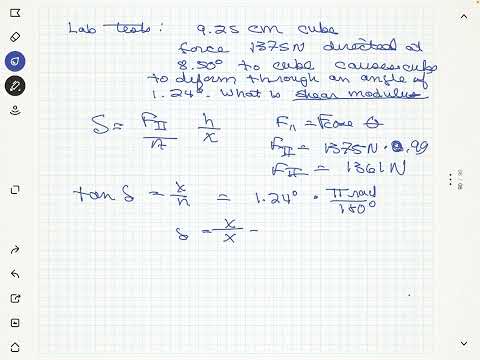 Lab Tests: 9.25 cm cube
force 1375N directed at
8.50° to cube causes cube
to deform through an angle of
1.24°. What is shear modulus
S = F_II/A h/x
F_II = Fcos θ
F_II = 1375N · 0.99
F_II = 1361 N
tan δ = x/h = 1.24° · π rad/180°
δ = x/x =